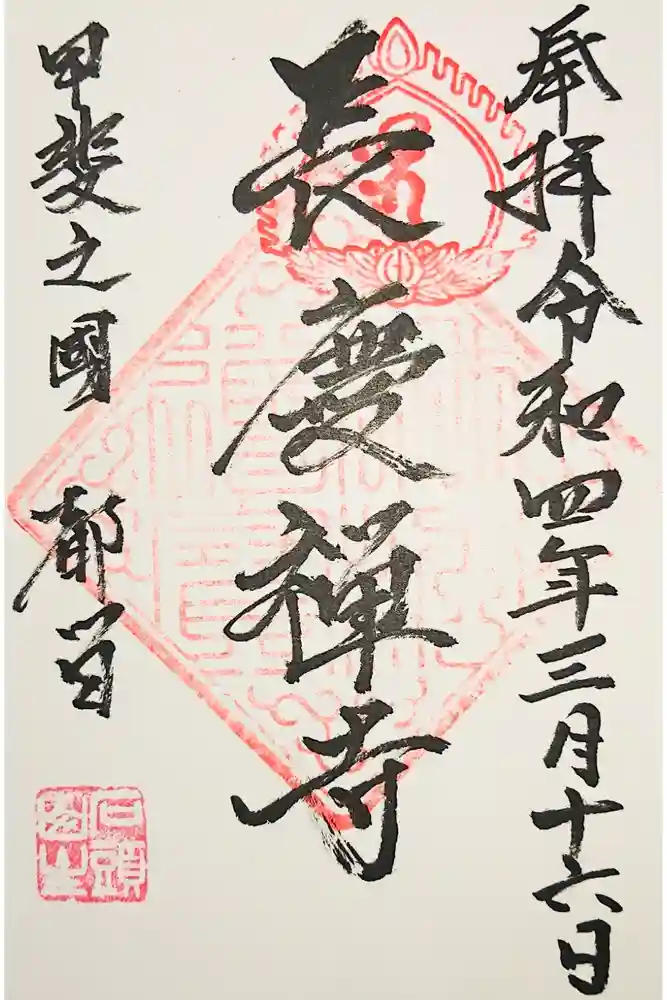 奉拝令和四年三月十六日
長慶禅寺
甲斐之國 都留
石頭